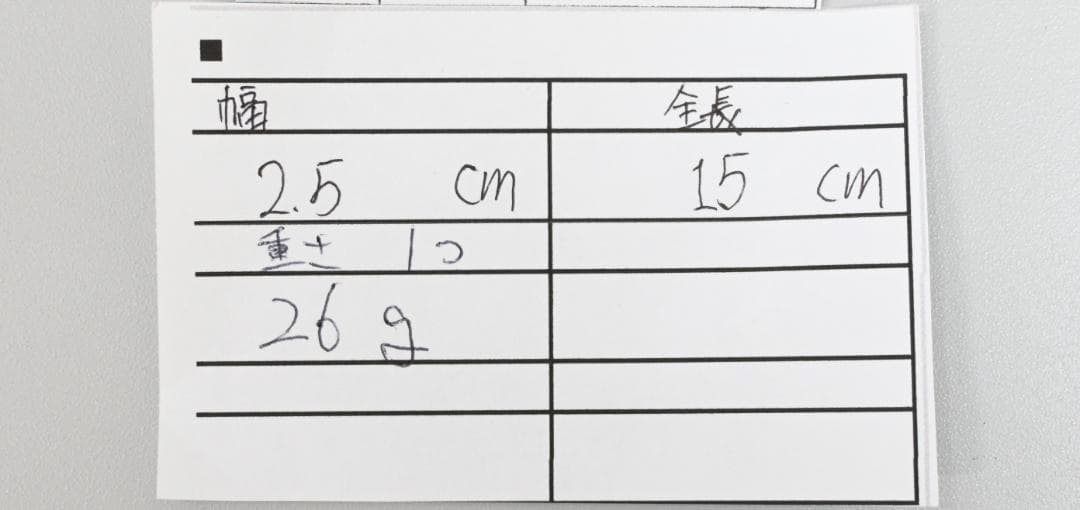 ■
幅 全長
2.5 cm 15 cm
重さ 1コ
26 g